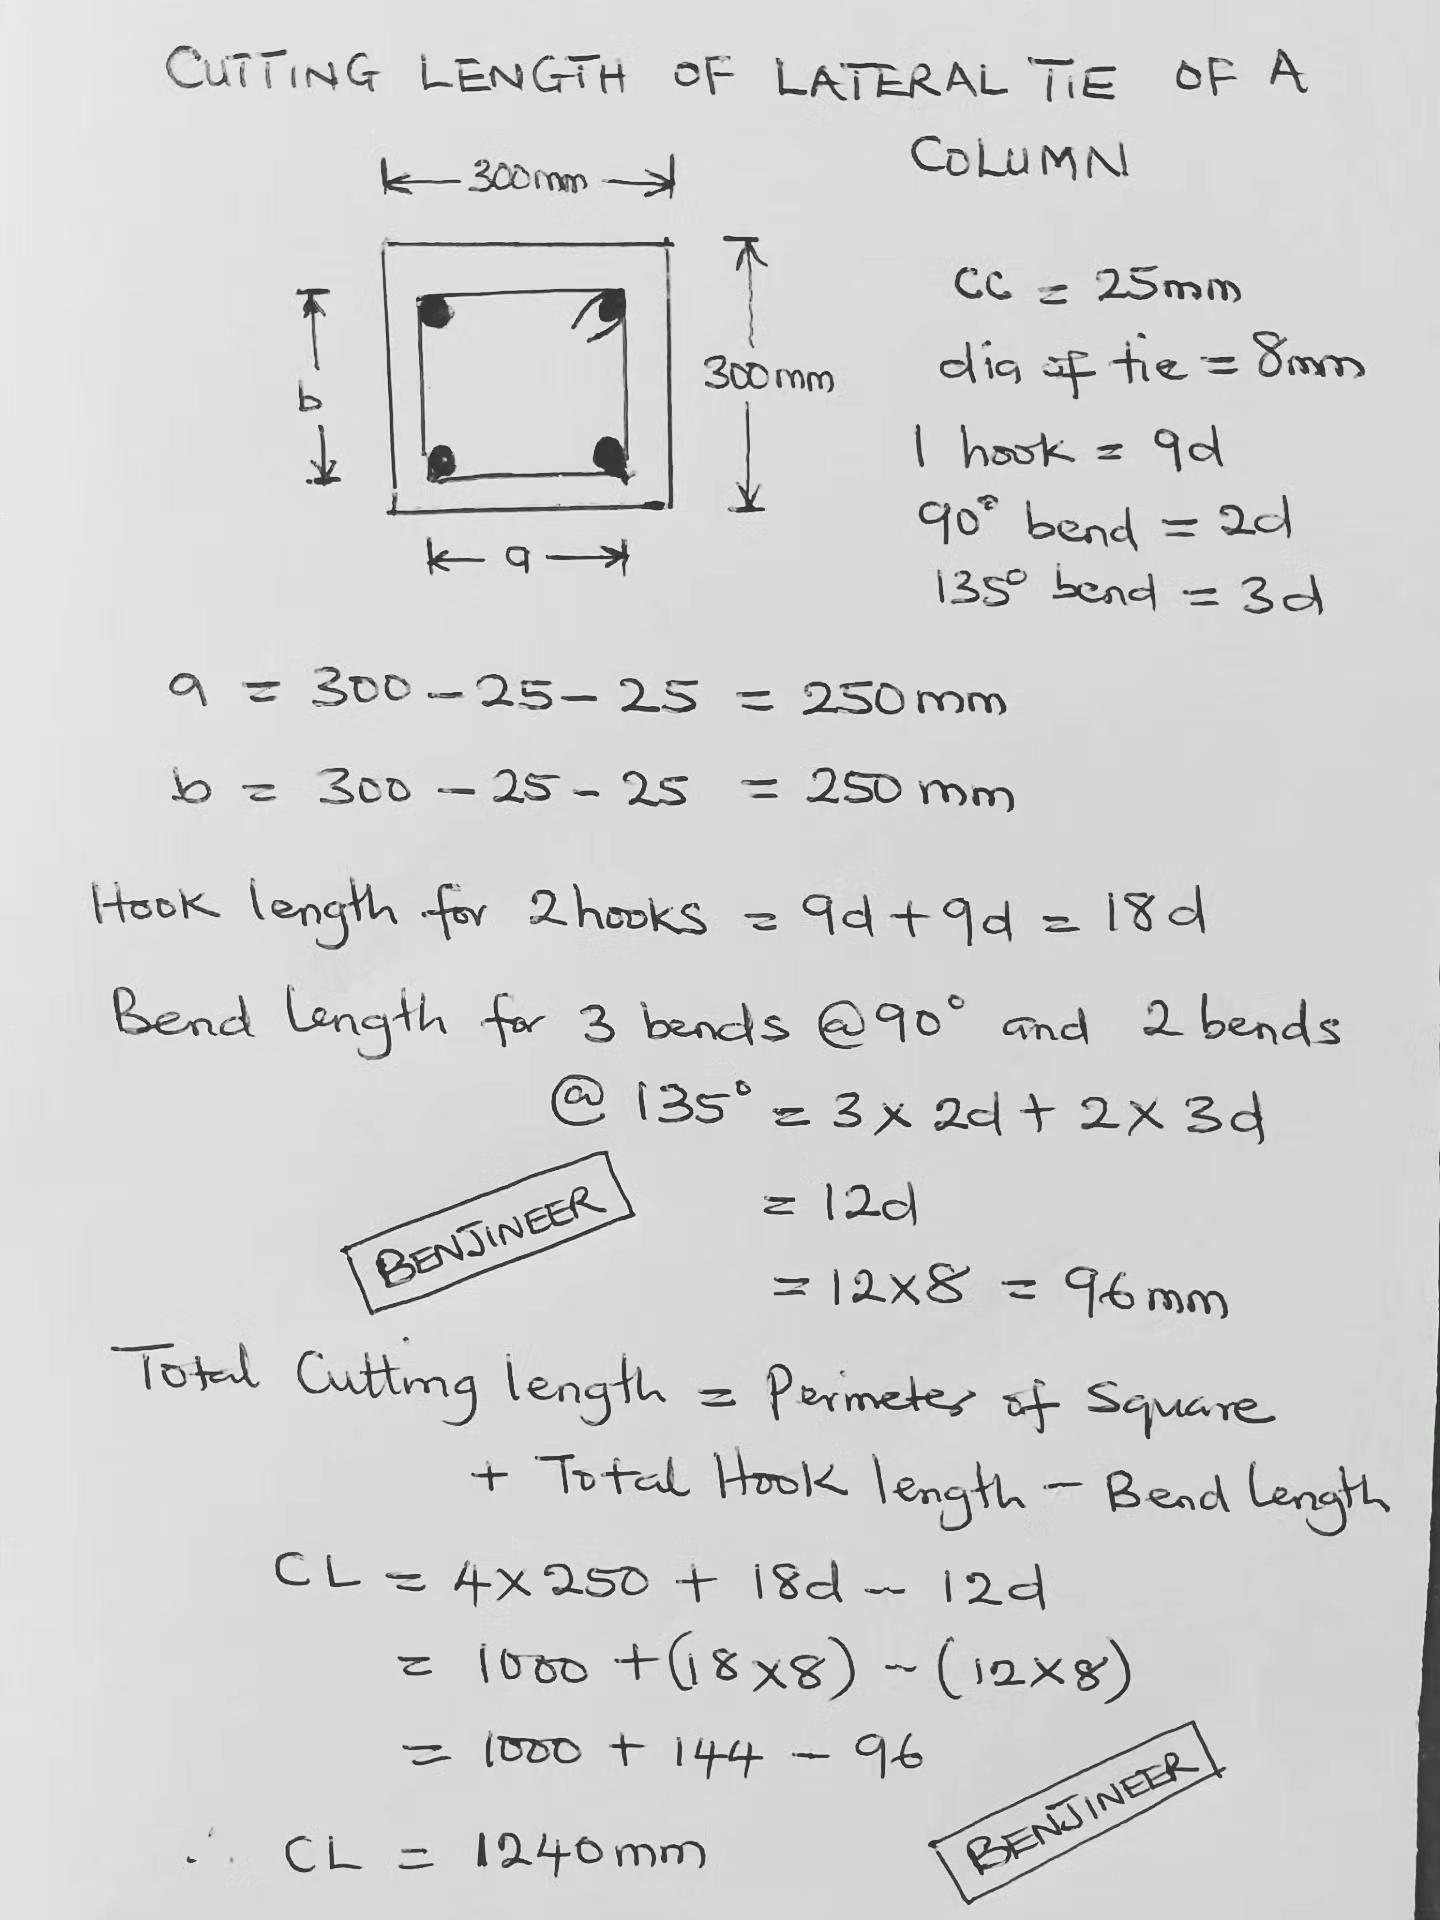 CUTTING LENGTH OF LATERAL TIE OF A
COLUMN
300mm
CC = 25mm
b
300mm
dia of tie = 8mm
1 hook = 9d
90° bend = 2d
a
135° bend = 3d
a = 300 - 25 - 25 = 250mm
b = 300 - 25 - 25 = 250 mm
Hook length for 2 hooks = 9d + 9d = 18d
Bend length for 3 bends @ 90° and 2 bends
@ 135° = 3 x 2d + 2 x 3d
BENJINEER
= 12d
= 12x8 = 96mm
Total Cutting length = Perimeter of Square
+ Total Hook length - Bend length
CL = 4 x 250 + 18d - 12d
= 1000 + (18x8) - (12x8)
= 1000 + 144 - 96
BENJINEER
∴ CL = 1240mm